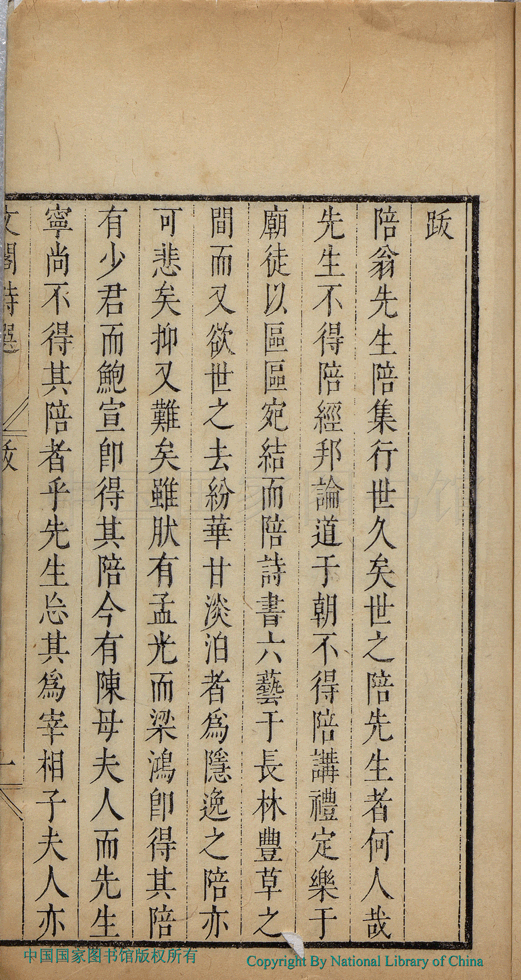 跋
陪翁先生陪集行世久矣世之陪先生者何人哉
先生不得陪經邦論道于朝不得陪講禮定樂于
廟徒以區區宛結而陪詩書六藝于長林豐草之
間而又欲世之去紛華甘淡泊者為隱逸之陪亦
可悲矣抑又難矣雖肰有孟光而梁鴻卽得其陪
有少君而鮑宣卽得其陪今有陳母夫人而先生
寧尚不得其陪者乎先生忘其為宰相子夫人亦
文閣詩選
跋
一
中国国家图书馆版权所有
Copyright By National Library of China